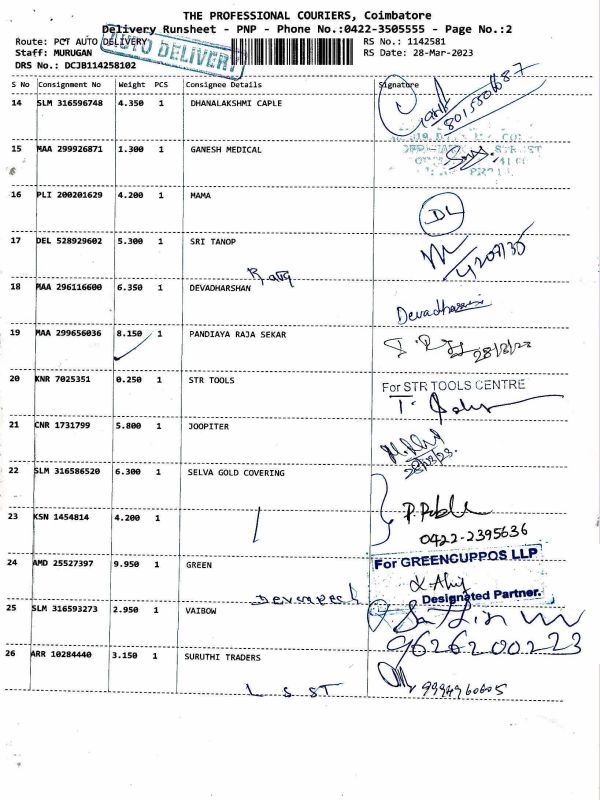 THE PROFESSIONAL COURIERS, Coimbatore
Delivery Runsheet - PNP - Phone No.:0422-3505555 - Page No.:2
Route: PCT AUTO DELIVERY
AUTO DELIVERY
RS No.: 1142581
Staff: MURUGAN
RS Date: 28-Mar-2023
DRS No.: DCJB114258102
S No Consignment No Weight PCS Consignee Details Signature
14 SLM 316596748 4.350 1 DHANALAKSHMI CAPLE
8015806687
15 MAA 299926871 1.300 1 GANESH MEDICAL
16 PLI 200201629 4.200 1 MAMA
DL
17 DEL 528929602 5.300 1 SRI TANOP
18 MAA 296116600 6.350 1 DEVADHARSHAN
Devadharsini
19 MAA 299656036 8.150 1 PANDIAYA RAJA SEKAR
20 KNR 7025351 0.250 1 STR TOOLS
For STR TOOLS CENTRE
21 CNR 1731799 5.800 1 JOOPITER
28/03/23.
22 SLM 316586520 6.300 1 SELVA GOLD COVERING
23 KSN 1454814 4.200 1
0422-2395636
24 AMD 25527397 9.950 1 GREEN
For GREENCUPPOS LLP
Designated Partner.
25 SLM 316593273 2.950 1 VAIBOW
9626200223
26 ARR 10284440 3.150 1 SURUTHI TRADERS
9994960605
L S ST